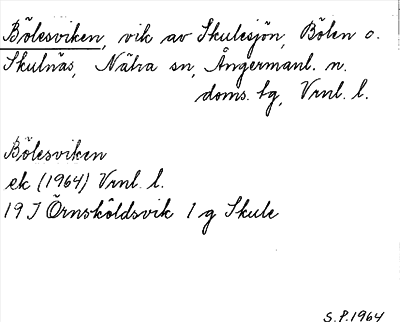 Bölesviken, vik av Skulesjön, Bölen o.
Skulnäs, Nätra sn, Ångermanl. n.
doms. tg, Vrnl. l.
Bölesviken
ek (1964) Vrnl. l.
19 J Örnsköldsvik 1 g Skule
S.P. 1964